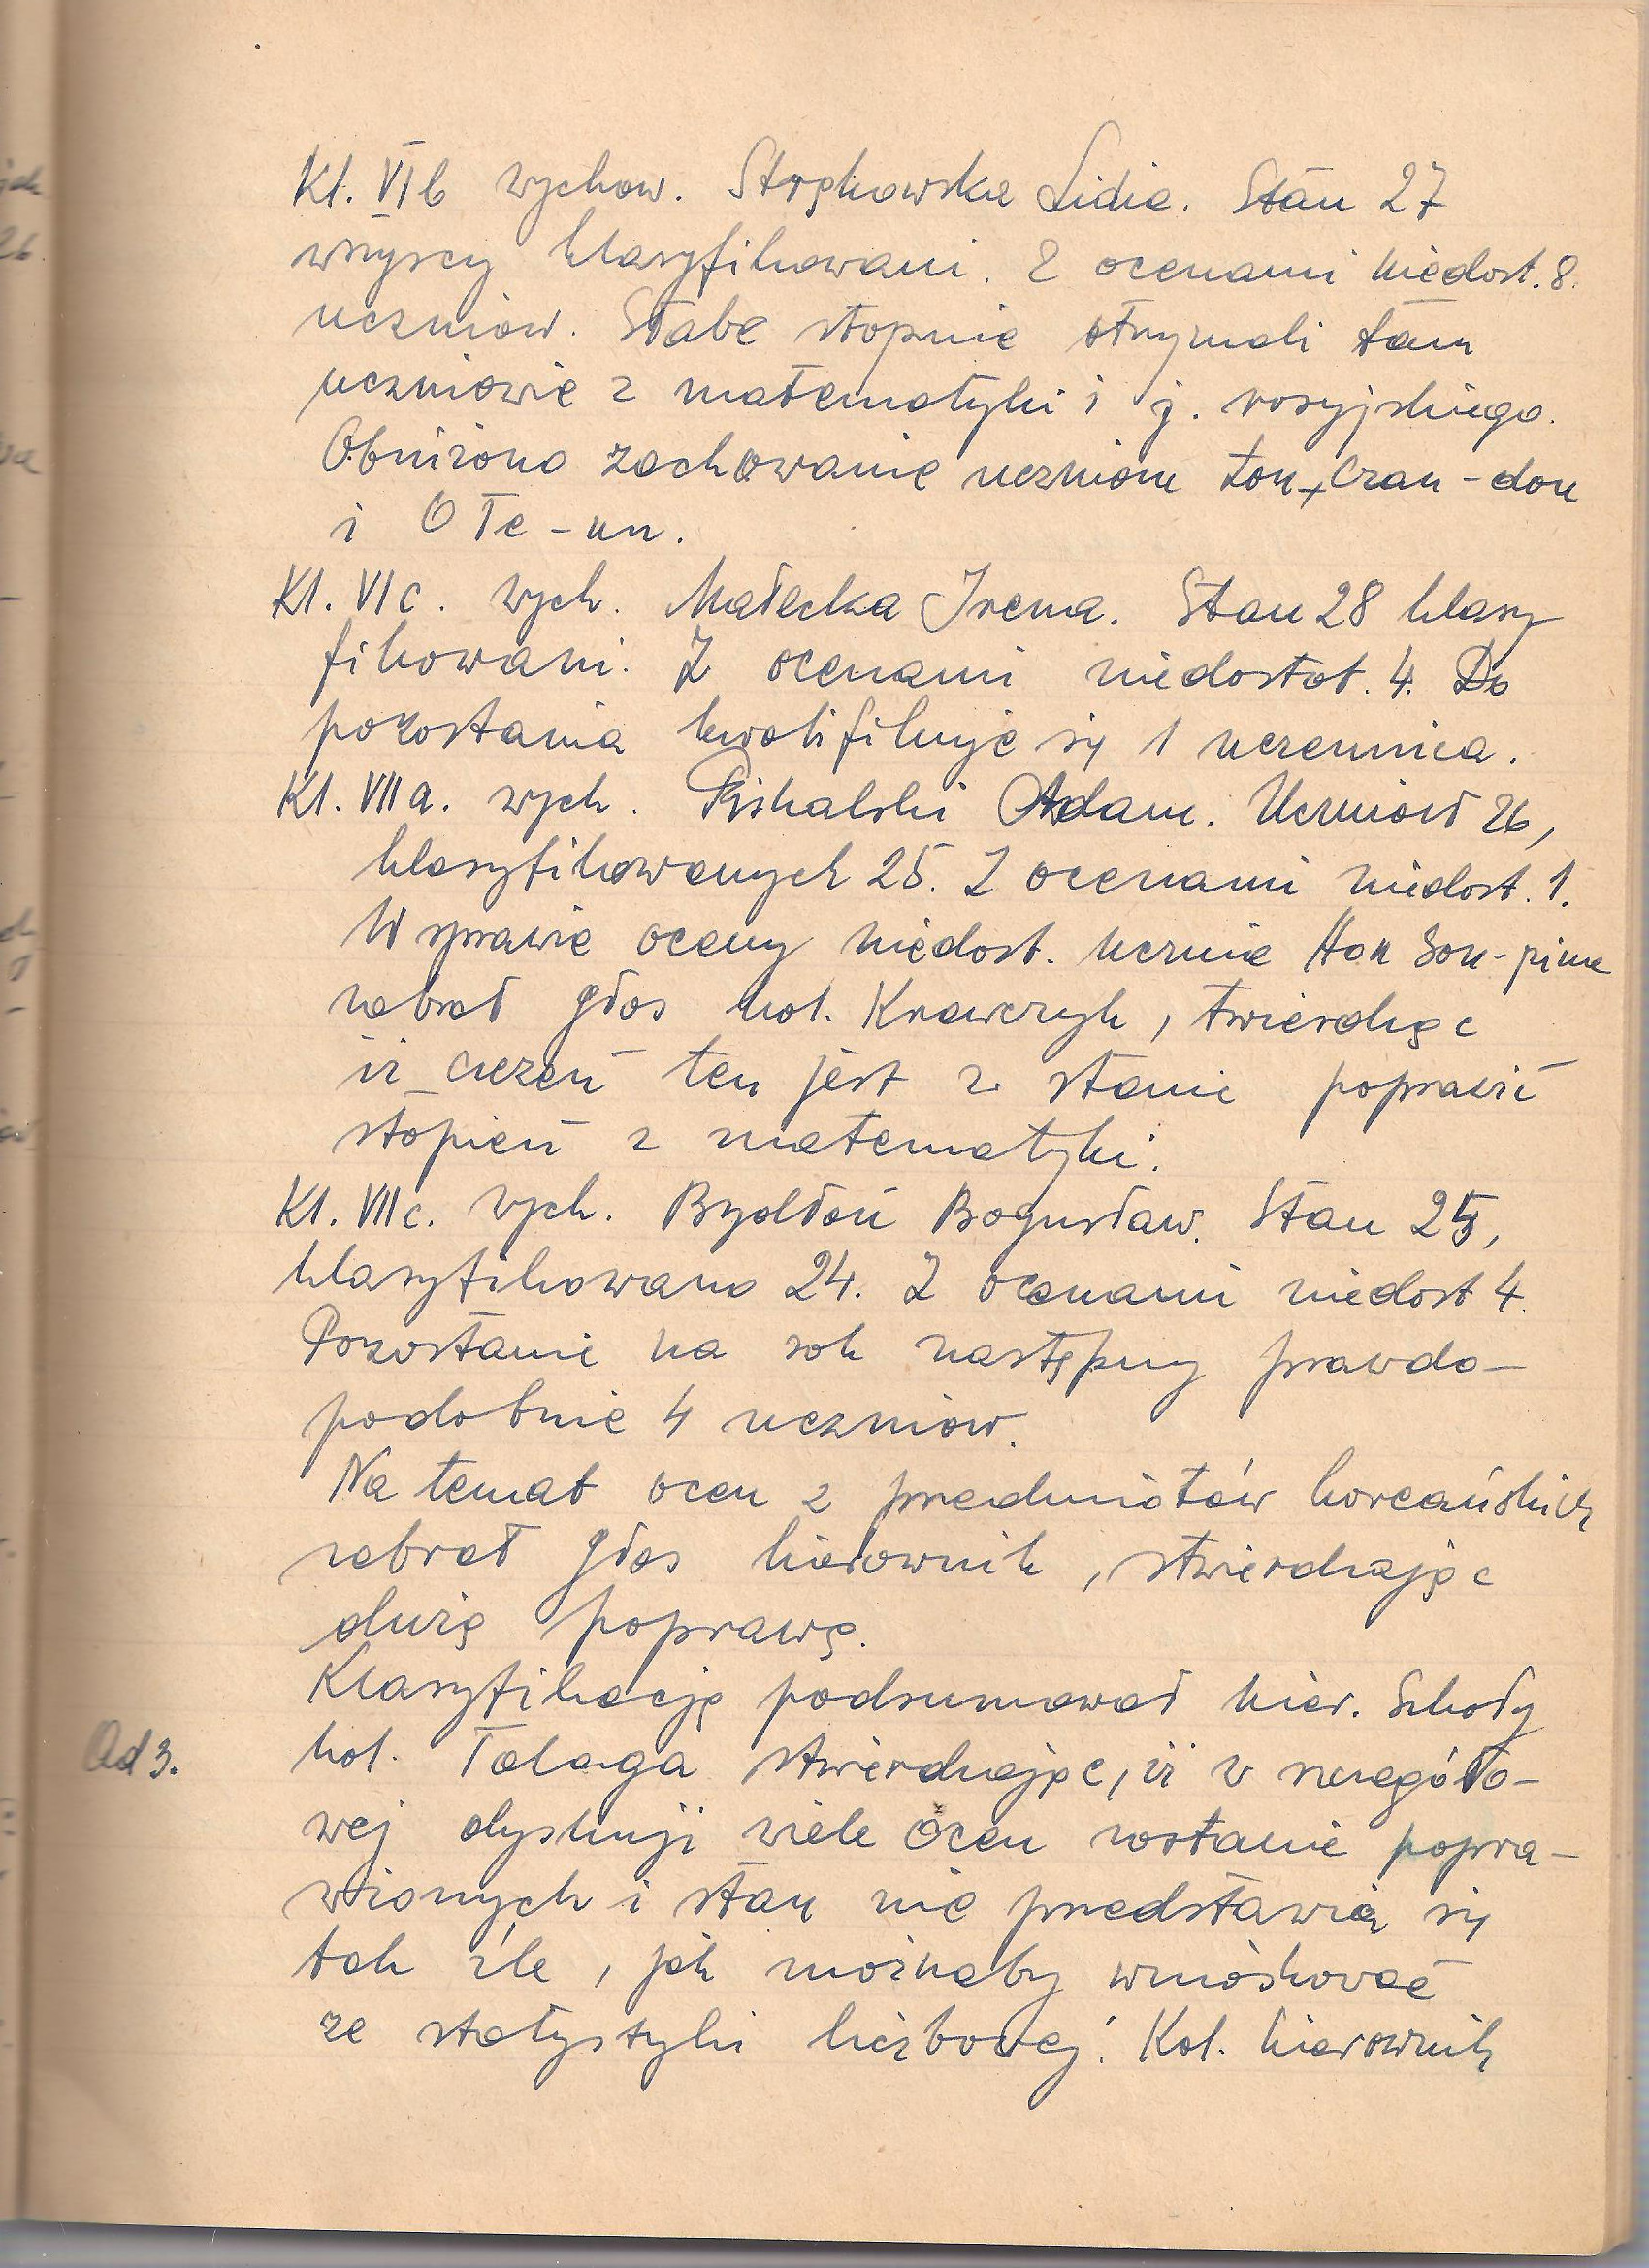 Kl. VI b wychow. Stępkowska Lidia. Stan 27
wszyscy klasyfikowani. Z ocenami niedost. 8.
uczniów. Słabe stopnie otrzymali tam
uczniowie z matematyki i j. rosyjskiego.
Obniżono zachowanie uczniom Czan-don
i O Te-un.
Kl. VI c. wych. Małecka Irena. Stan 28 klasy
fikowani. Z ocenami niedostat. 4. Do
pozostania kwalifikuje się 1 uczennica.
Kl. VII a. wych. Adam. Uczniów 26,
klasyfikowanych 25. Z ocenami niedost. 1.
W sprawie oceny niedost. ucznia Hon
zabrał głos kol. Krawczyk, twierdząc
iż uczeń ten jest w stanie poprawić
stopień z matematyki.
Kl. VII c. wych. Bogusław. Stan 25,
klasyfikowano 24. Z ocenami niedost 4.
Pozostanie na rok następny prawdo-
podobnie 4 uczniów.
Na temat ocen z przedmiotów koreańskich
zabrał głos kierownik, stwierdzając
dużą poprawę.
Klasyfikację podsumował kier. Szkoły
Ad 3. kol. Talaga stwierdzając, iż w szczegóło-
wej dyskusji wiele ocen zostanie popra-
wionych i stan nie przedstawia się
tak źle, jak możnaby wnioskować
ze statystyki liczbowej. Kol. kierownik